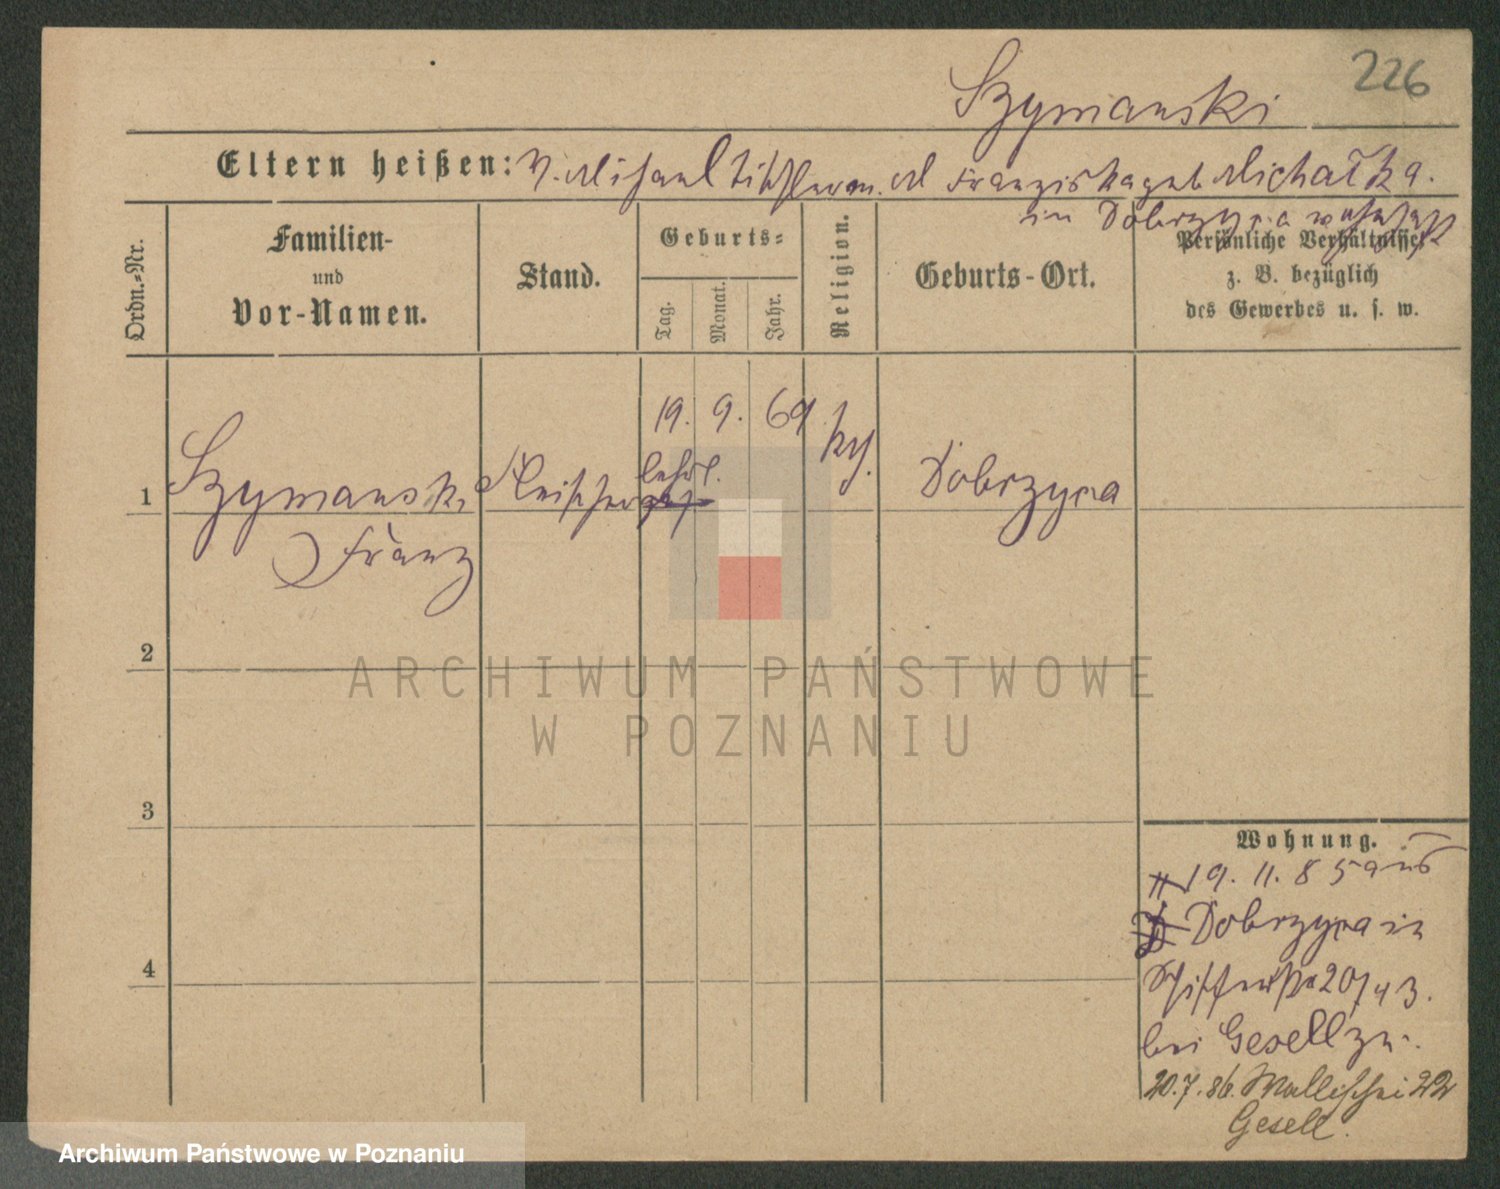 226
Szymanski
Eltern heißen: V. Michael Tischlerm. M Franziska geb Michalska.
in Dobrzyca wohnhaft
Ordn.-Nr.
Familien-
und
Vor-Namen.
Stand.
Geburts-
Tag.
Monat.
Jahr.
Religion.
Geburts-Ort.
Persönliche Verhältnisse
z. B. bezüglich
des Gewerbes u. s. w.
19. 9. 69
kth.
1 Szymanski Fleischer lehrl. Dobrzyca
Franz
2
3
4
Wohnung.
19. 11. 85 aus
Dobrzyca in
Schifferstr 20/43.
bei Gesell zu.
20.7.86. Wallischei 22
Gesell.
ARCHIWUM PAŃSTWOWE
W POZNANIU
Archiwum Państwowe w Poznaniu